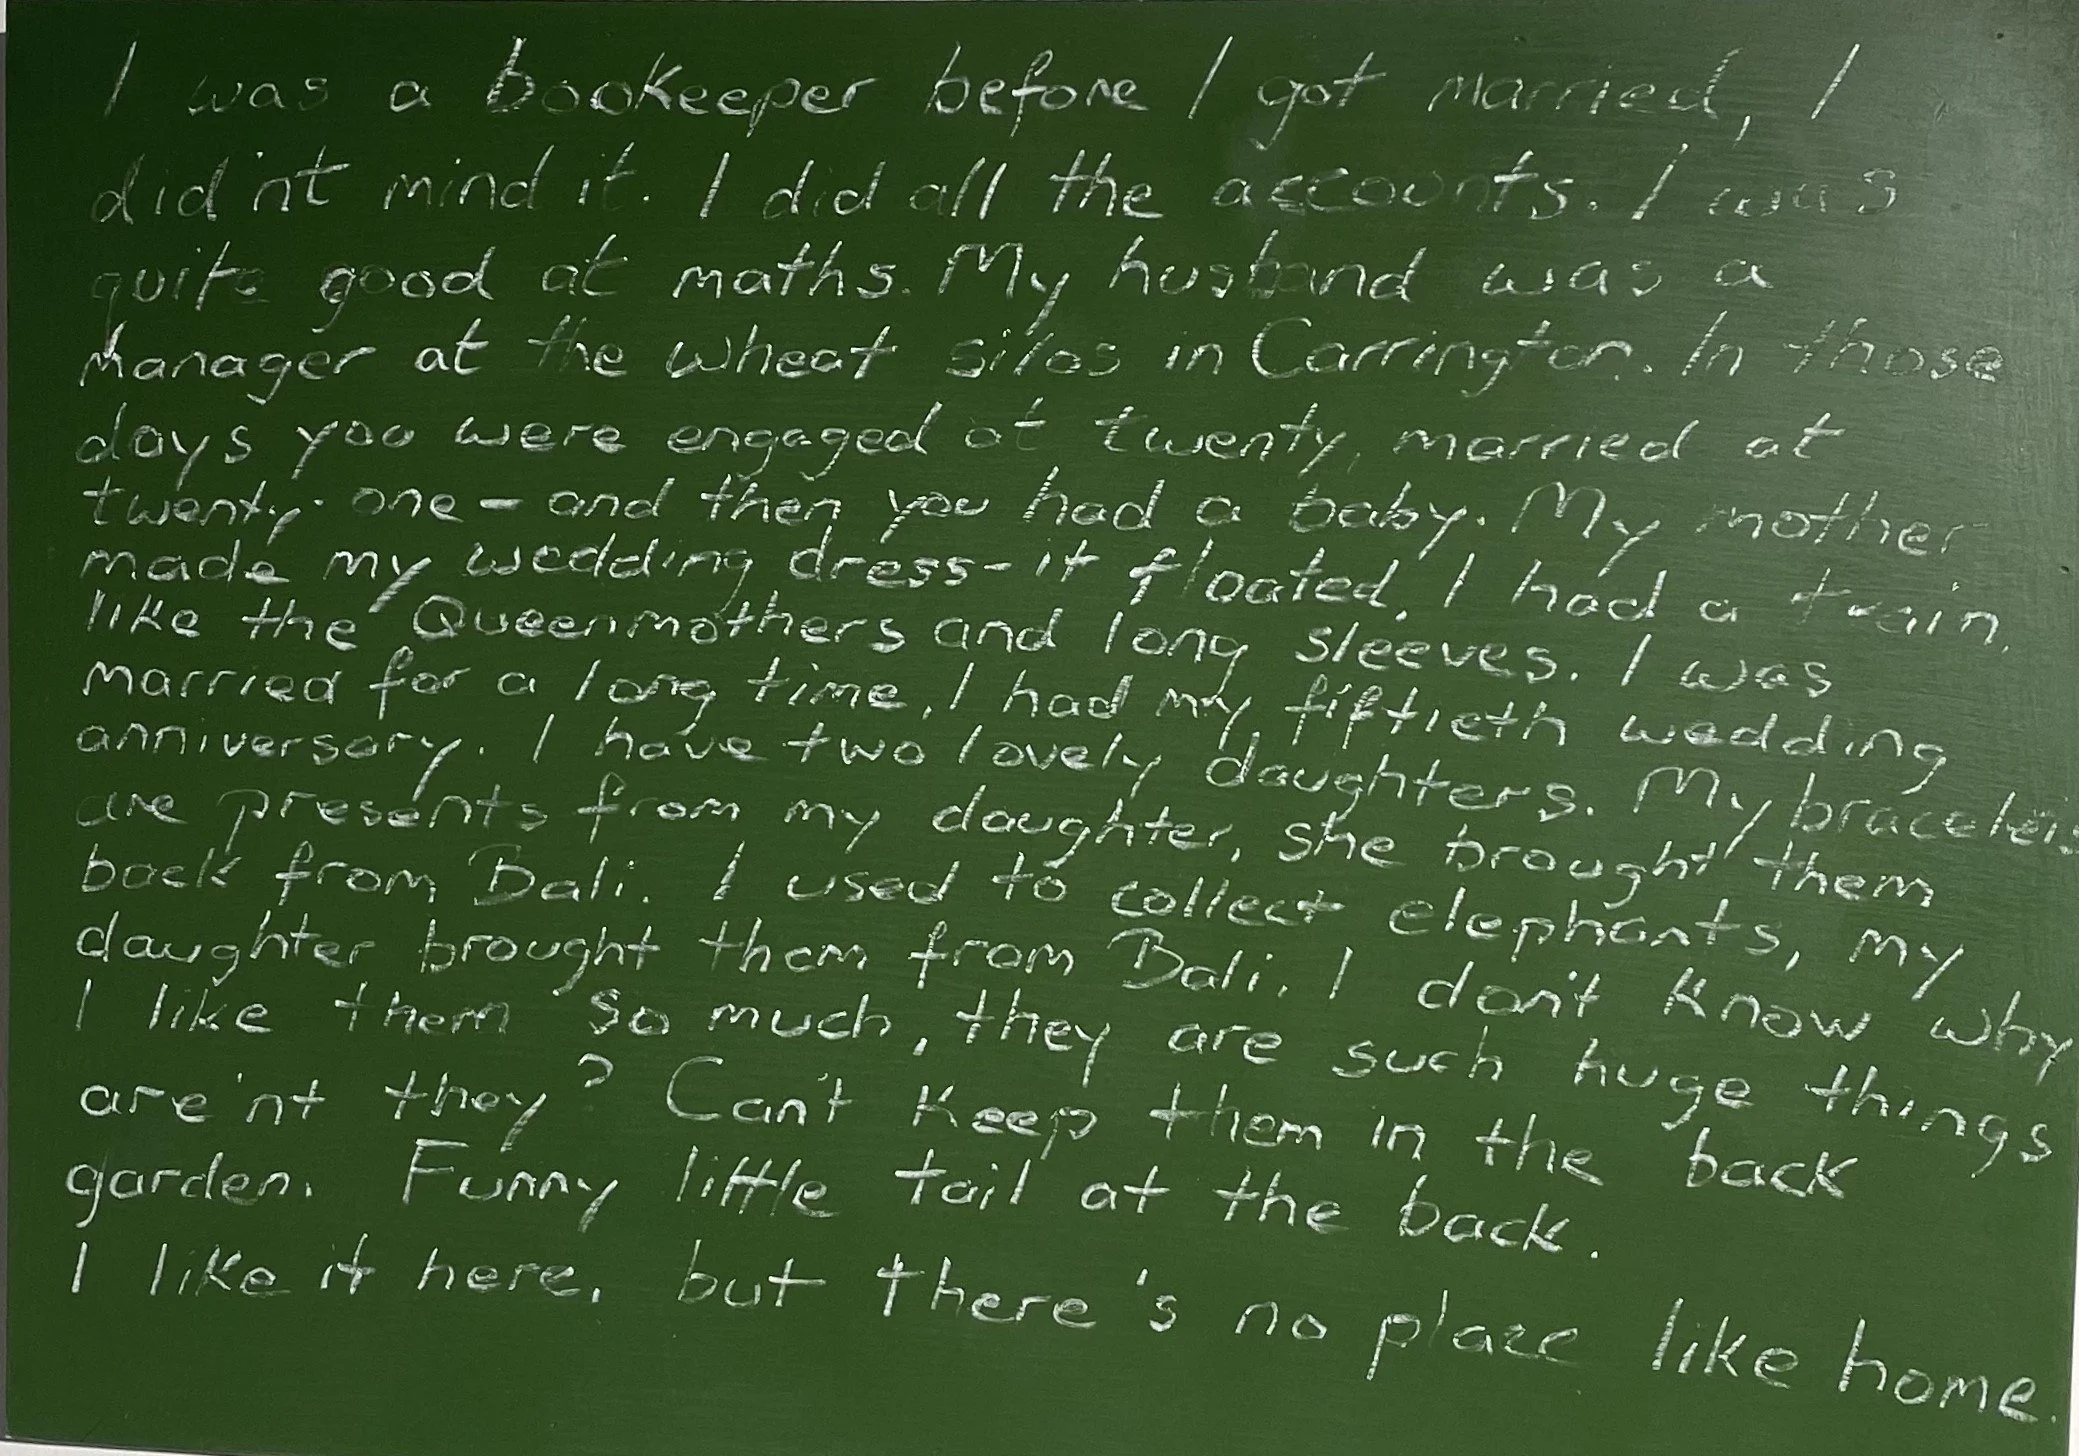 I was a bookeeper before I got married, I
did'nt mind it. I did all the accounts. I was
quite good at maths. My husband was a
manager at the wheat silos in Carrington. In those
days you were engaged at twenty, married at
twenty-one - and then you had a baby. My mother
made my wedding dress - it floated, I had a train,
like the Queenmothers and long sleeves. I was
married for a long time, I had my fiftieth wedding
anniversary. I have two lovely daughters. My bracelets
are presents from my daughter, she brought them
back from Bali. I used to collect elephants, my
daughter brought them from Bali. I don't know why
I like them so much, they are such huge things
are'nt they? Can't keep them in the back
garden. Funny little tail at the back.
I like it here, but there's no place like home.